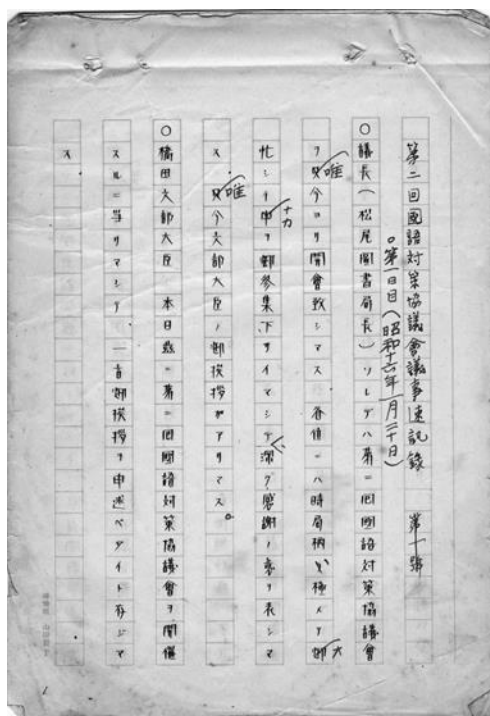 第二回國語対策協議會議事速記録　第十號
○第一日目（昭和十六年一月二十日）
○議長（松尾圖書局長）　ソレデハ第二回國語対策協議會
ヲ只唯今ヨリ開會致シマス　各位ニハ時局柄極メテ御大
忙シイ中ナカヲ御参集下サイマシテ深ク感謝ノ意ヲ表シマ
ス　只唯今文部大臣ノ御挨拶ガアリマス。
○橋田文部大臣　本日茲ニ第二回國語対策協議會ヲ開催
スルニ当リマシテ　一言御挨拶ヲ申述ベタイト存ジマ
ス